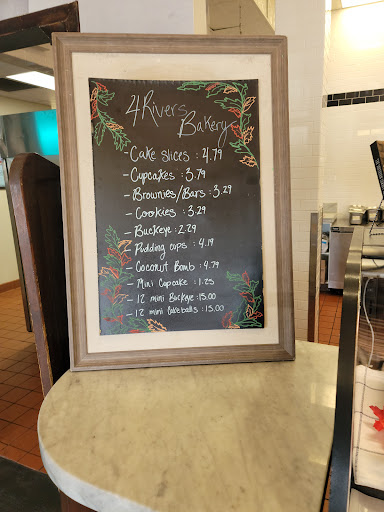 4Rivers
Bakery
- Cake slices : 4.79
- Cupcakes : 3.79
- Brownies/Bars : 3.29
- Cookies : 3.29
- Buckeye : 2.29
- Pudding cups : 4.19
- Coconut Bomb : 4.79
- Mini Cupcake : 1.25
- 12 mini Buckeye : 15.00
- 12 mini Cakeballs : 15.00